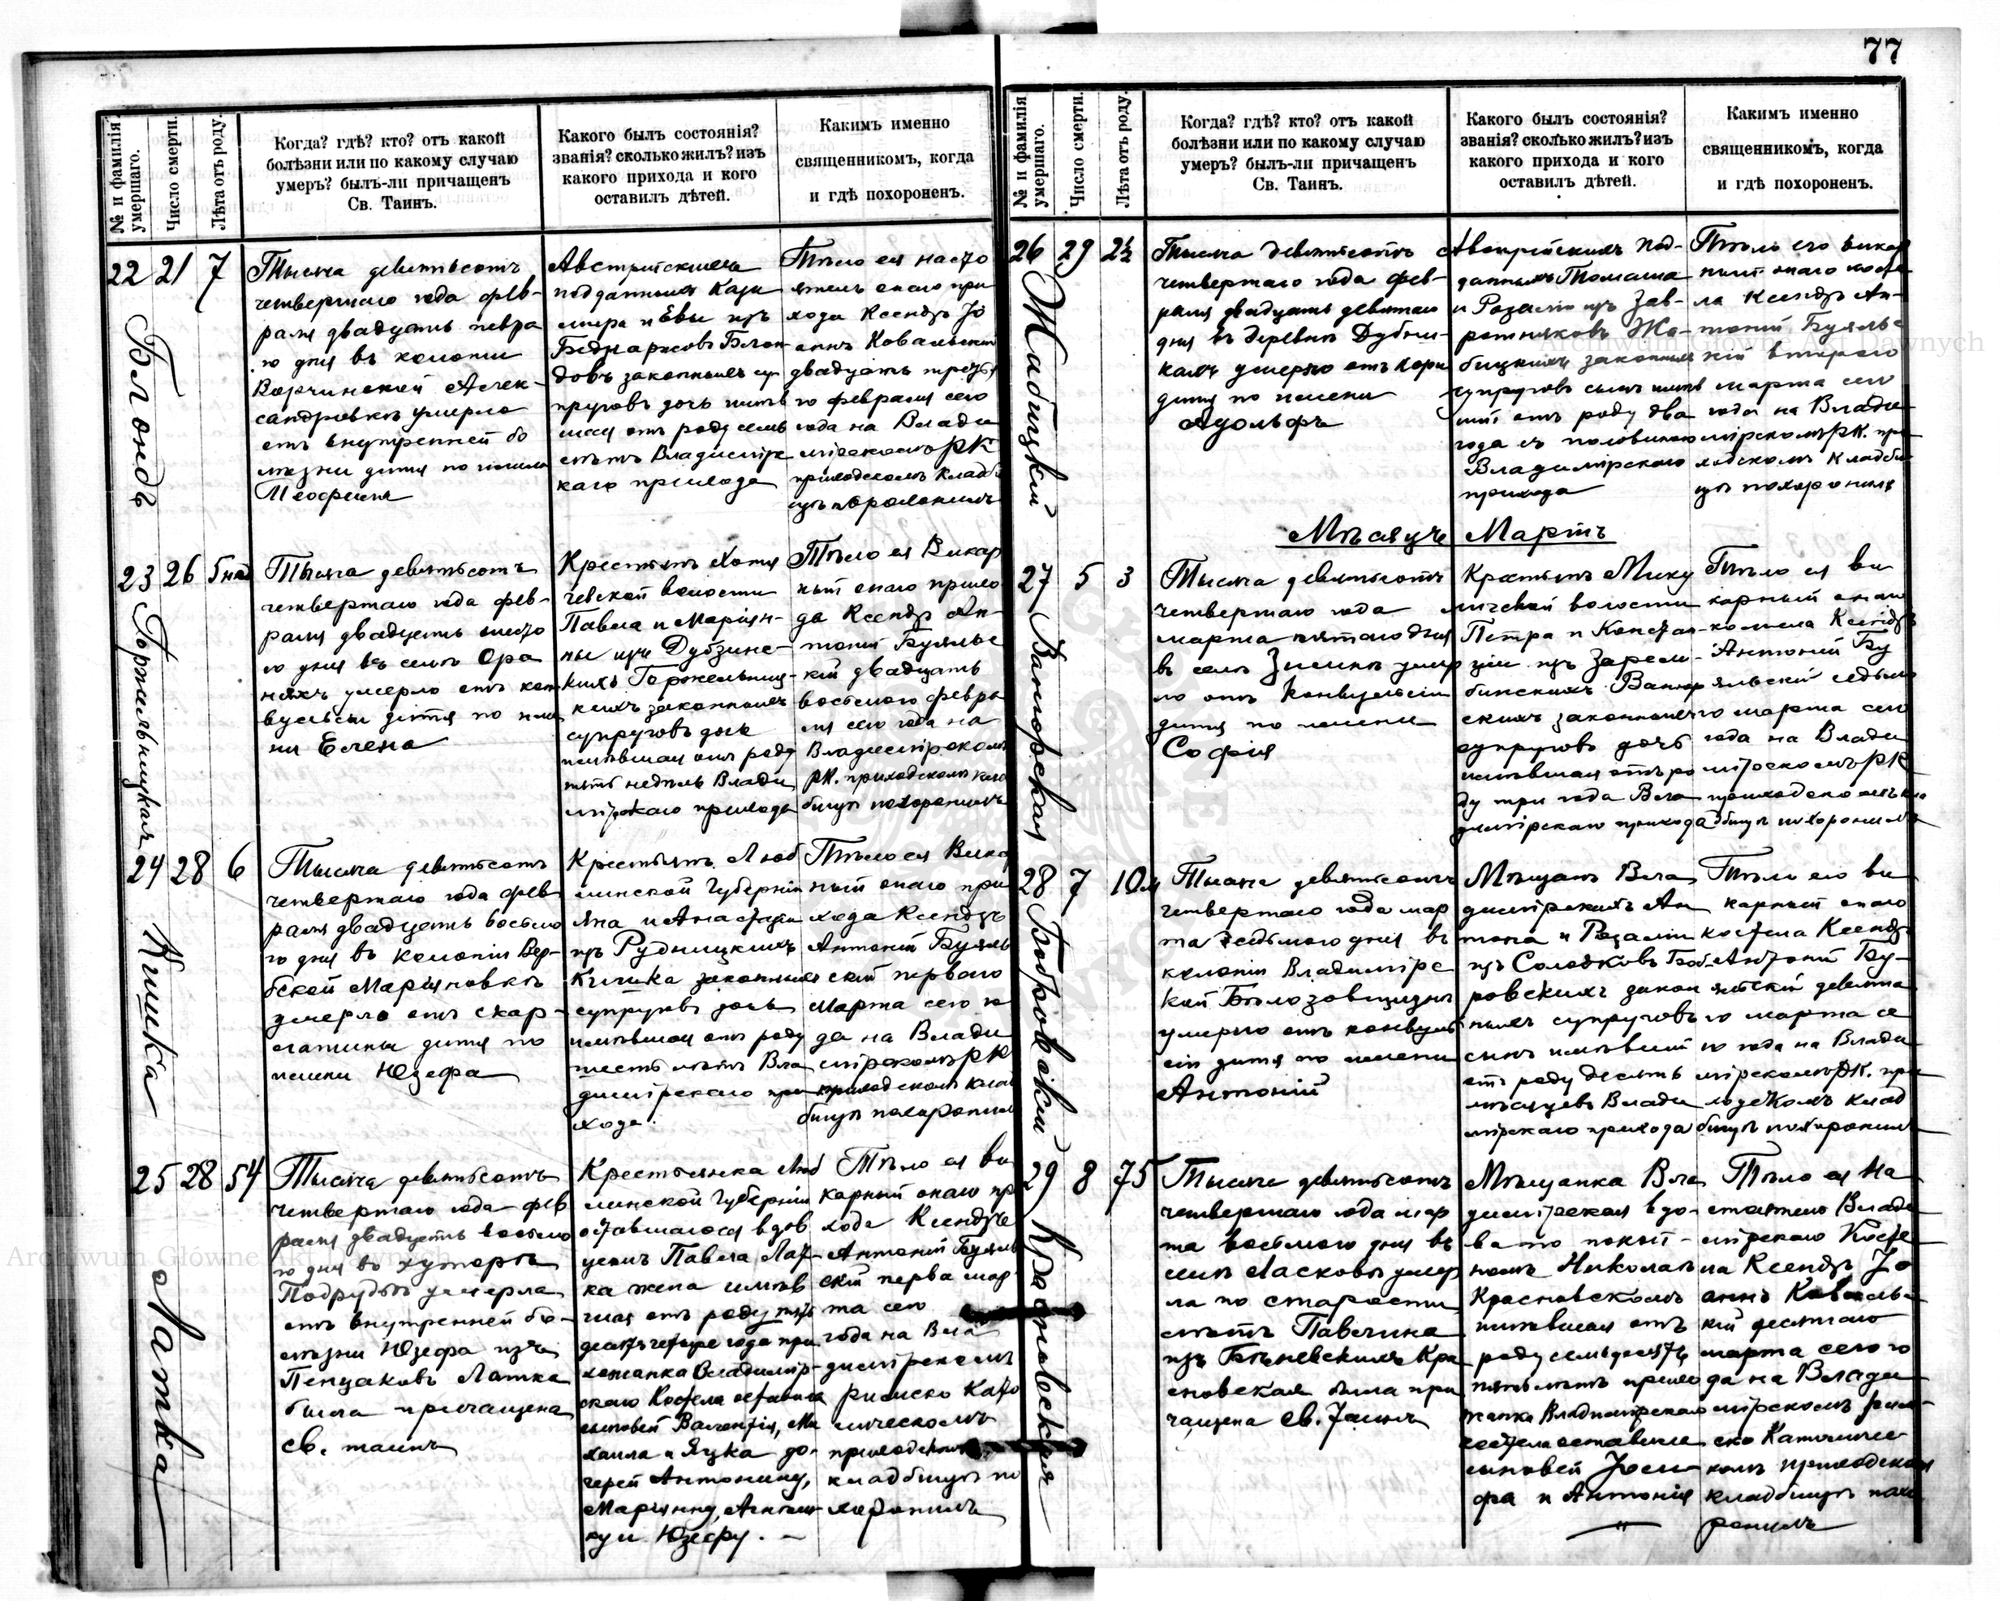 77
№ и фамилія умершаго.
Число смерти.
Лѣта отъ роду.
Когда? гдѣ? кто? отъ какой
болѣзни или по какому случаю
умеръ? былъ-ли причащенъ
Св. Таинъ.
Какого былъ состоянія?
званія? сколько жилъ? изъ
какого прихода и кого
оставилъ дѣтей.
Какимъ именно
священникомъ, когда
и гдѣ похороненъ.
22 21 7
Блондъ
Тысяча девятьсотъ
четвертаго года фев-
раля двадцать перва
го дня въ колоніи
Александровкѣ умерло
отъ внутренней бо
лѣзни дитя по имени
Австрійскихъ
подданныхъ Кази
мира и Евы изъ
Беднарисовъ Блон
довъ законныхъ су
пруговъ дочь
отъ роду семь
лѣтъ Владимірс
каго прихода
Тѣло ея насто
ятель онаго при
хода Ксендзъ Іо
аннъ Ковальскій
двадцать третья
го февраля сего
года на Влади
мірскомъ РК
приходскомъ кладби
щѣ похоронилъ
23 26 5 нед
Горжельницкая
Тысяча девятьсотъ
четвертаго года фев-
раля двадцать шесто
го дня въ селѣ Ора
няхъ умерло отъ кон
вульсіи дитя по име
ни Елена
Крестьянъ
волости
Павла и Маріян-
ны изъ
законныхъ
супруговъ дочь
имѣвшая отъ роду
пять недѣль Влади
мірскаго прихода
Тѣло ея Викар
ный онаго прихо
да Ксендзъ Ан-
тоній Буяльс
кій двадцать
восьмого февра
ля сего года на
Владимірскомъ
РК. приходскомъ клад
бищѣ похоронилъ
24 28 6
Кишка
Тысяча девятьсотъ
четвертаго года фев
раля двадцать восьмо
го дня въ колоніи Вер-
бской Маріяновкѣ
умерло отъ скар-
латины дитя по
имени Юзефа
Крестьянъ Люб
линской губерніи
Яна и Анастазіи
изъ Рудницкихъ
Кишка законныхъ
супруговъ дочь
имѣвшая отъ роду
шесть лѣтъ Вла
димірскаго при
хода.
Тѣло ея Вика
ный онаго при
хода Ксендзъ
Антоній Буяль
скій перваго
марта сего го
да на Влади
мірскомъ РК
приходскомъ клад
бищѣ похоронилъ
25 28 54
Латка
Тысяча девятьсотъ
четвертаго года фев
раля двадцать восьмо
го дня въ хуторѣ
умерла
отъ внутренней бо-
лѣзни Юзефа изъ
Пенцаковъ Латка
была причащена
св. таинъ
Крестьянка Люб
линской губерніи
оставшагося вдов
цемъ Павла Лат-
ка жена имѣв
шая отъ роду пять
десятъ четыре года при
хожанка Владимір-
скаго Костела оставила
сыновей Валентія, Ми
хаила и Яцка до-
черей Антонину,
Маріянну,
и Юзефу. —
Тѣло ея ви
карный онаго при
хода Ксендзъ
Антоній Буяль
скій перва мар-
та сего
года на Вла
димірскомъ
римско Като
лическомъ
приходскомъ
кладбищѣ по
хоронилъ
№ и фамилія умершаго.
Число смерти.
Лѣта отъ роду.
Когда? гдѣ? кто? отъ какой
болѣзни или по какому случаю
умеръ? былъ-ли причащенъ
Св. Таинъ.
Какого былъ состоянія?
званія? сколько жилъ? изъ
какого прихода и кого
оставилъ дѣтей.
Какимъ именно
священникомъ, когда
и гдѣ похороненъ.
26 29 2½
Жабицкій
Тысяча девятьсотъ
четвертаго года фев-
раля двадцать девятаго
дня въ деревнѣ Дубни-
кахъ умерло отъ кори
дитя по имени
Адольфъ
Австрійскихъ под-
данныхъ Томаша
и Розаліи изъ Зав-
ротняковъ Жа-
бицкихъ законныхъ
супруговъ сынъ имѣв
шій отъ роду два
года съ половиною
Владимірскаго
прихода
Тѣло его викар
ный онаго косте
ла Ксендзъ Ан-
тоній Буяльс
кій второго
марта сего
года на Влади
мірскомъ РК. при
ходскомъ кладби
щѣ похоронилъ
Мѣсяцъ Мартъ
27 5 3
Ваторская
Тысяча девятьсотъ
четвертаго года
марта пятаго дня
въ селѣ Зимнѣ умер
ло отъ конвульсіи
дитя по имени
Софія
Крестьянъ Мику
личской волости
Петра и Констан-
ціи изъ Зарембинскихъ
законныхъ
супруговъ дочь
имѣвшая отъ ро
ду три года Вла
димірскаго прихода
Тѣло ея ви
карный онаго
костела Ксендзъ
Антоній Бу
яльскій седьмо
го марта сего
года на Влади
мірскомъ РК
приходскомъ кла
дбищѣ похоронилъ
28 7 10 м
Бобровскій
Тысяча девятьсотъ
четвертаго года мар
та седьмого дня въ
колоніи Владимірс
кой Бѣлозовщизнѣ
умерло отъ конвуль
сіи дитя по имени
Антоній
Мѣщанъ Вла
димірскихъ Ан
тона и Розаліи
изъ Солодковъ Боб-
ровскихъ закон
ныхъ супруговъ
сынъ имѣвшій
отъ роду десять
мѣсяцевъ Влади
мірскаго прихода
Тѣло его ви
карный онаго
костела Ксендзъ
Антоній Бу-
яльскій девята
го марта се
го года на Влади
мірскомъ РК. при
ходскомъ клад
бищѣ похоронилъ
29 8 75
Красновская
Тысяча девятьсотъ
четвертаго года мар
та восьмого дня въ
селѣ Ласковѣ умер
ла по старости
лѣтъ Павлина
изъ Кра
сновская была при
чащена св. Таинъ
Мѣщанка Вла
димірская вдо-
ва по покой-
номъ Николаѣ
Красновскомъ
имѣвшая отъ
роду семьдесятъ
пять лѣтъ прихо
жанка Владимірскаго
костела оставила
сыновей Іоси
фа и Антонія
Тѣло ея На
стоятель Влади
мірскаго Косте
ла Ксендзъ Іо
аннъ Коваль-
кій десятаго
марта сего го
да на Влади
мірскомъ рим-
ско Католичес
комъ приходскомъ
кладбищѣ похо
ронилъ
Archiwum Główne Akt Dawnych
Archiwum Główne Akt Dawnych